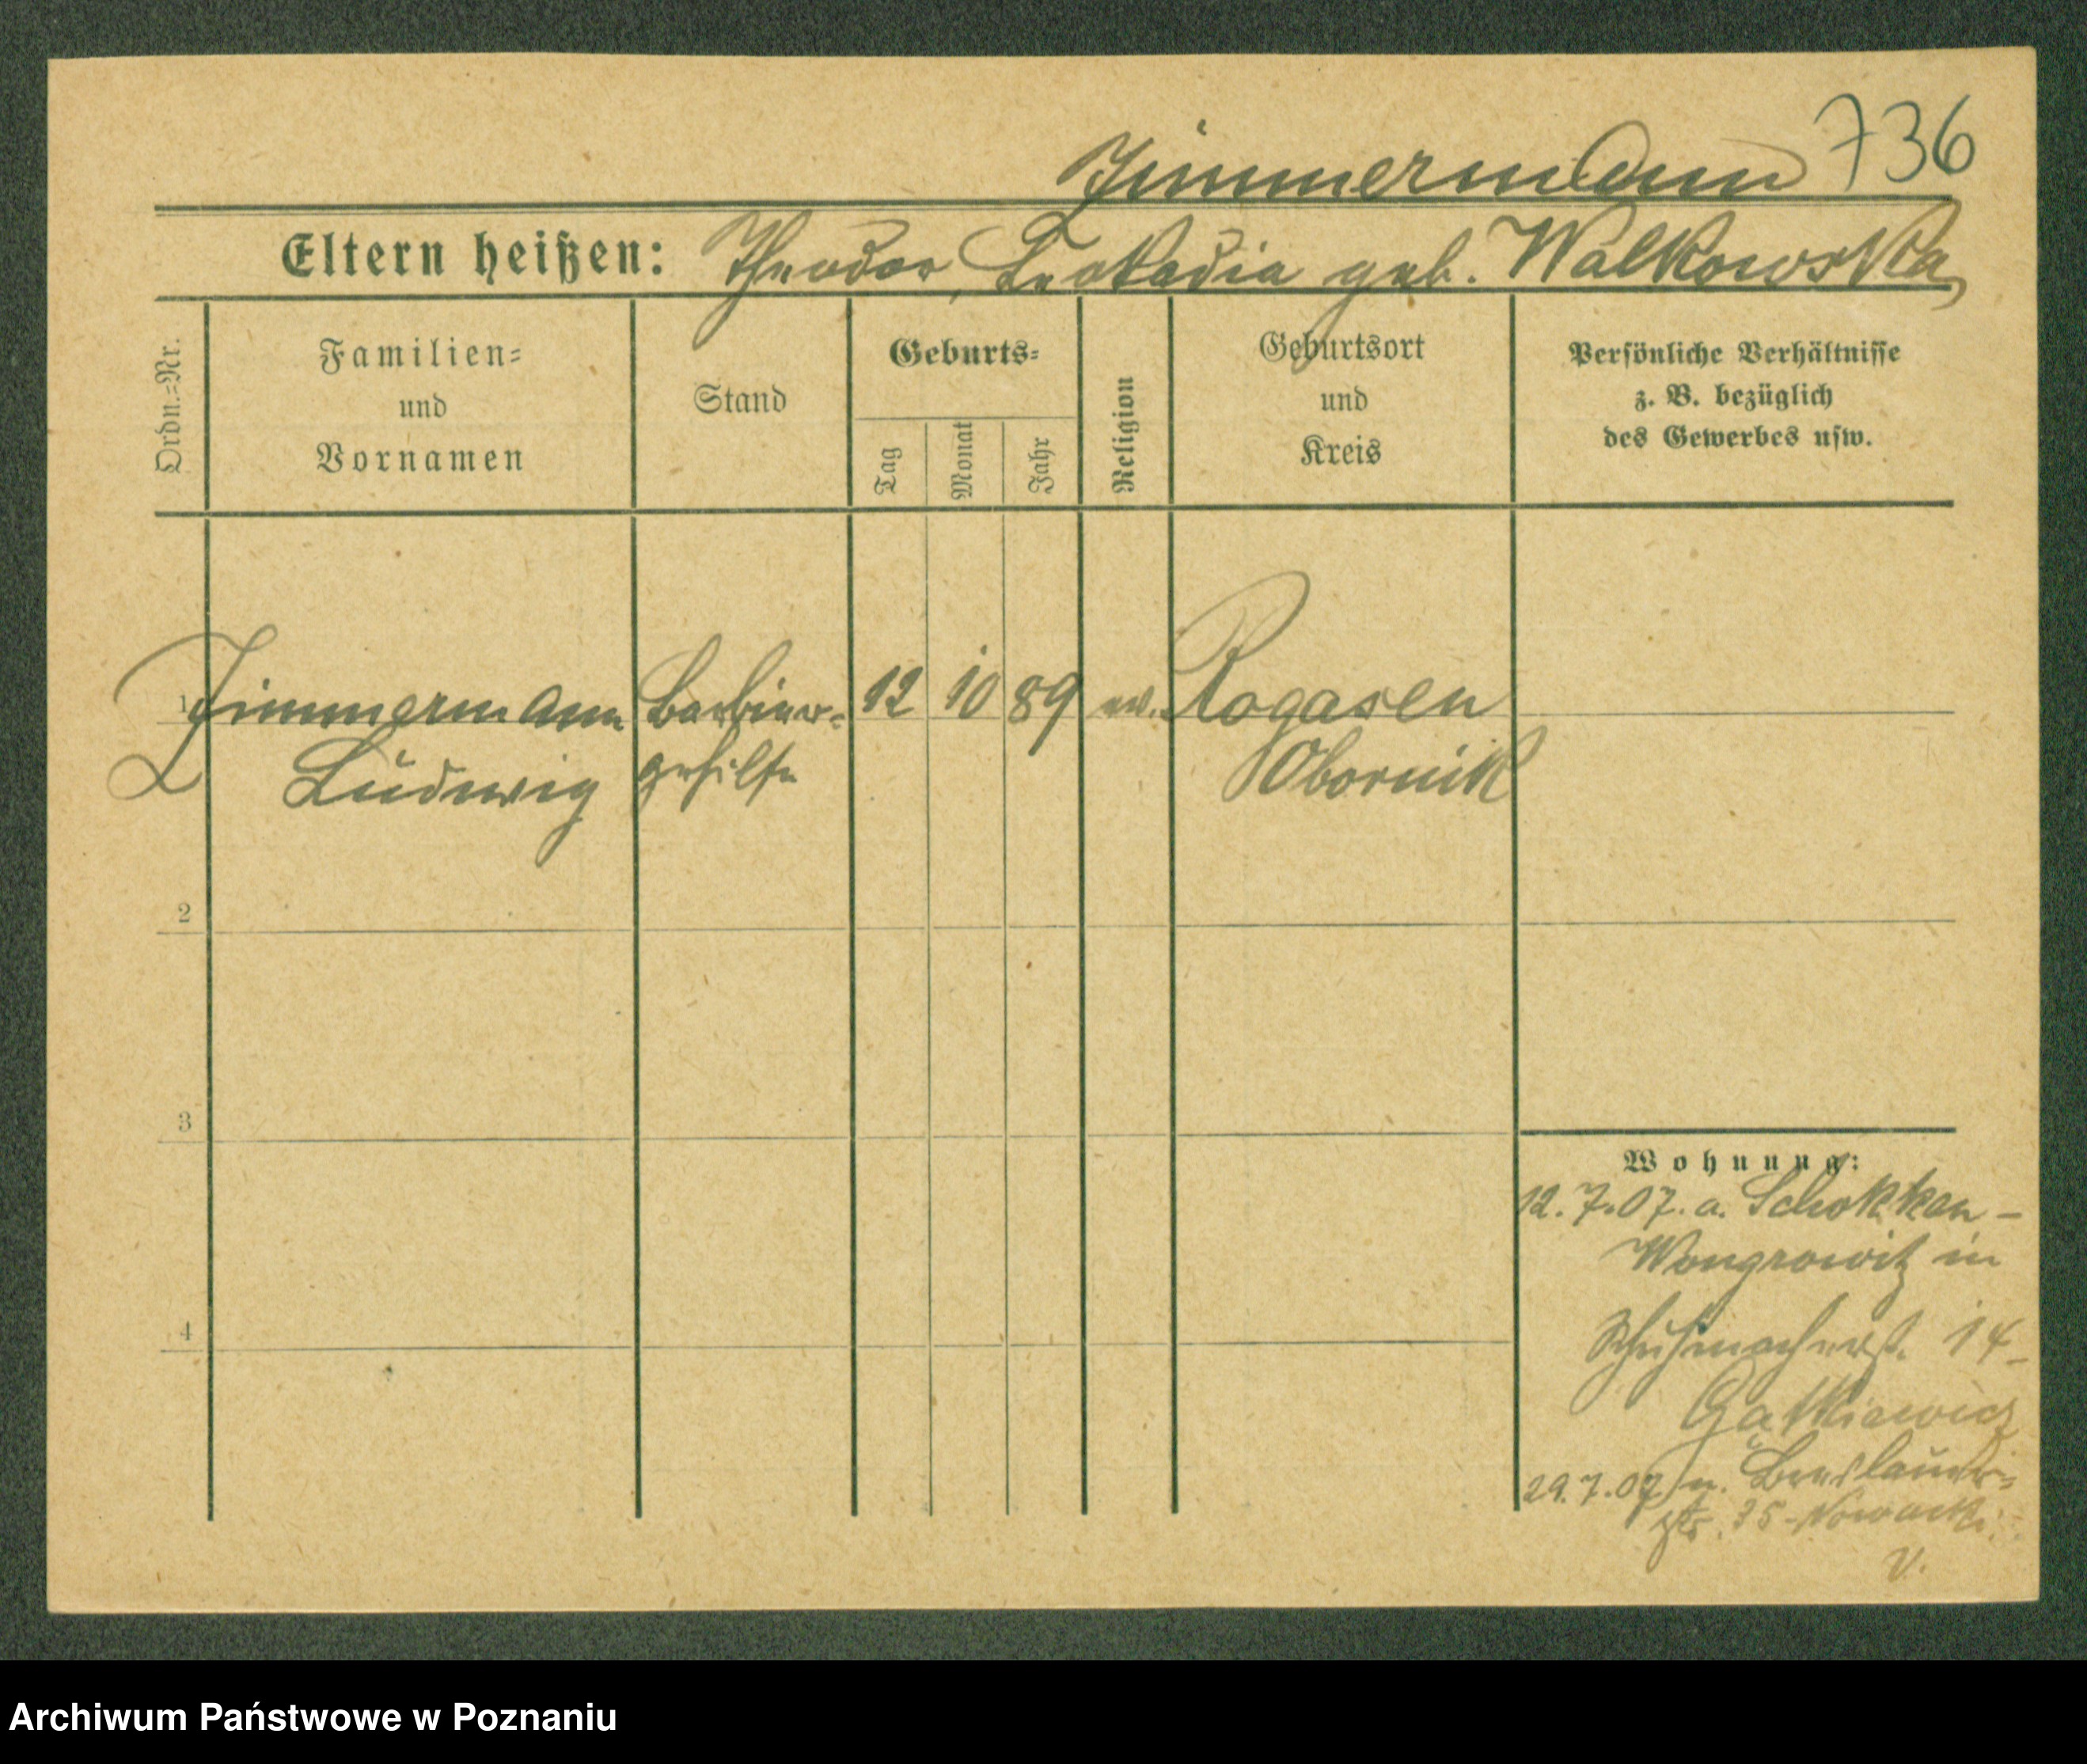 Zimmermann 736
Eltern heißen: Theodor, Leokadia geb. Walkowska,
Ordn.=Nr.
Familien=
und
Vornamen
Stand
Geburts=
Tag
Monat
Jahr
Religion
Geburtsort
und
Kreis
Persönliche Verhältnisse
z. B. bezüglich
des Gewerbes usw.
1 Zimmermann Barbier= 12 10 89 ev. Rogasen
Ludwig gehilfe Obornik
2
3
4
Wohnung:
12.7.07. a. Schokken -
Wongrowitz in
Schuhmacherst. 14 -
29.7.07 n. Breslauer=
str. 35 - Nowacki.
V.
Archiwum Państwowe w Poznaniu